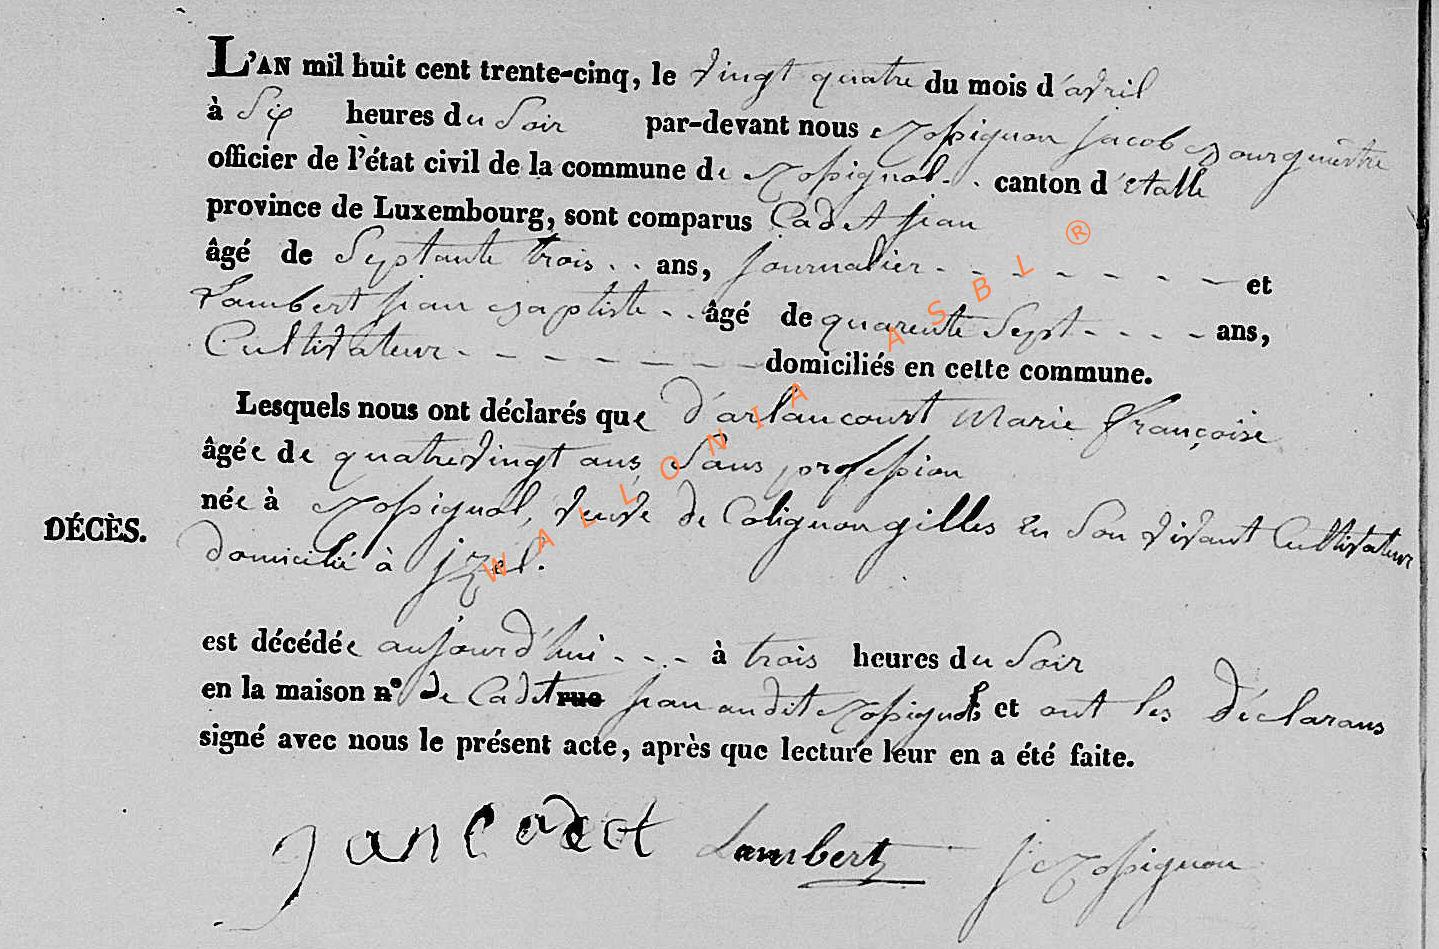 L'AN mil huit cent trente-cinq, le vingt quatre du mois d'avril
à Six heures du Soir par-devant nous Rossignon Jacob Bourguêstre
officier de l'état civil de la commune de Rossignol - - canton d'Etalle
province de Luxembourg, sont comparus Cadet jean
âgé de Septante trois - - ans, journalier - - - - - - - - et
Lambert jean Baptiste - - âgé de quarente Sept - - - - ans,
Cultivateur - - - - - - - - domiciliés en cette commune.
Lesquels nous ont déclarés que d'arlancourt Marie Françoise
âgée de quatrevingt ans Sans profession
née à Rossignol, veuve de Colignon gilles En Son vivant Cultivateur
DÉCÈS.
domicilié à jzel.
est décédée aujourd'hui - - - à trois heures du Soir
en la maison n° de Cadet rue jean audit Rossignol et ont les Déclarans
signé avec nous le présent acte, après que lecture leur en a été faite.
jan Cadet Lambert J Rossignon
WALLONIA ASBL ®